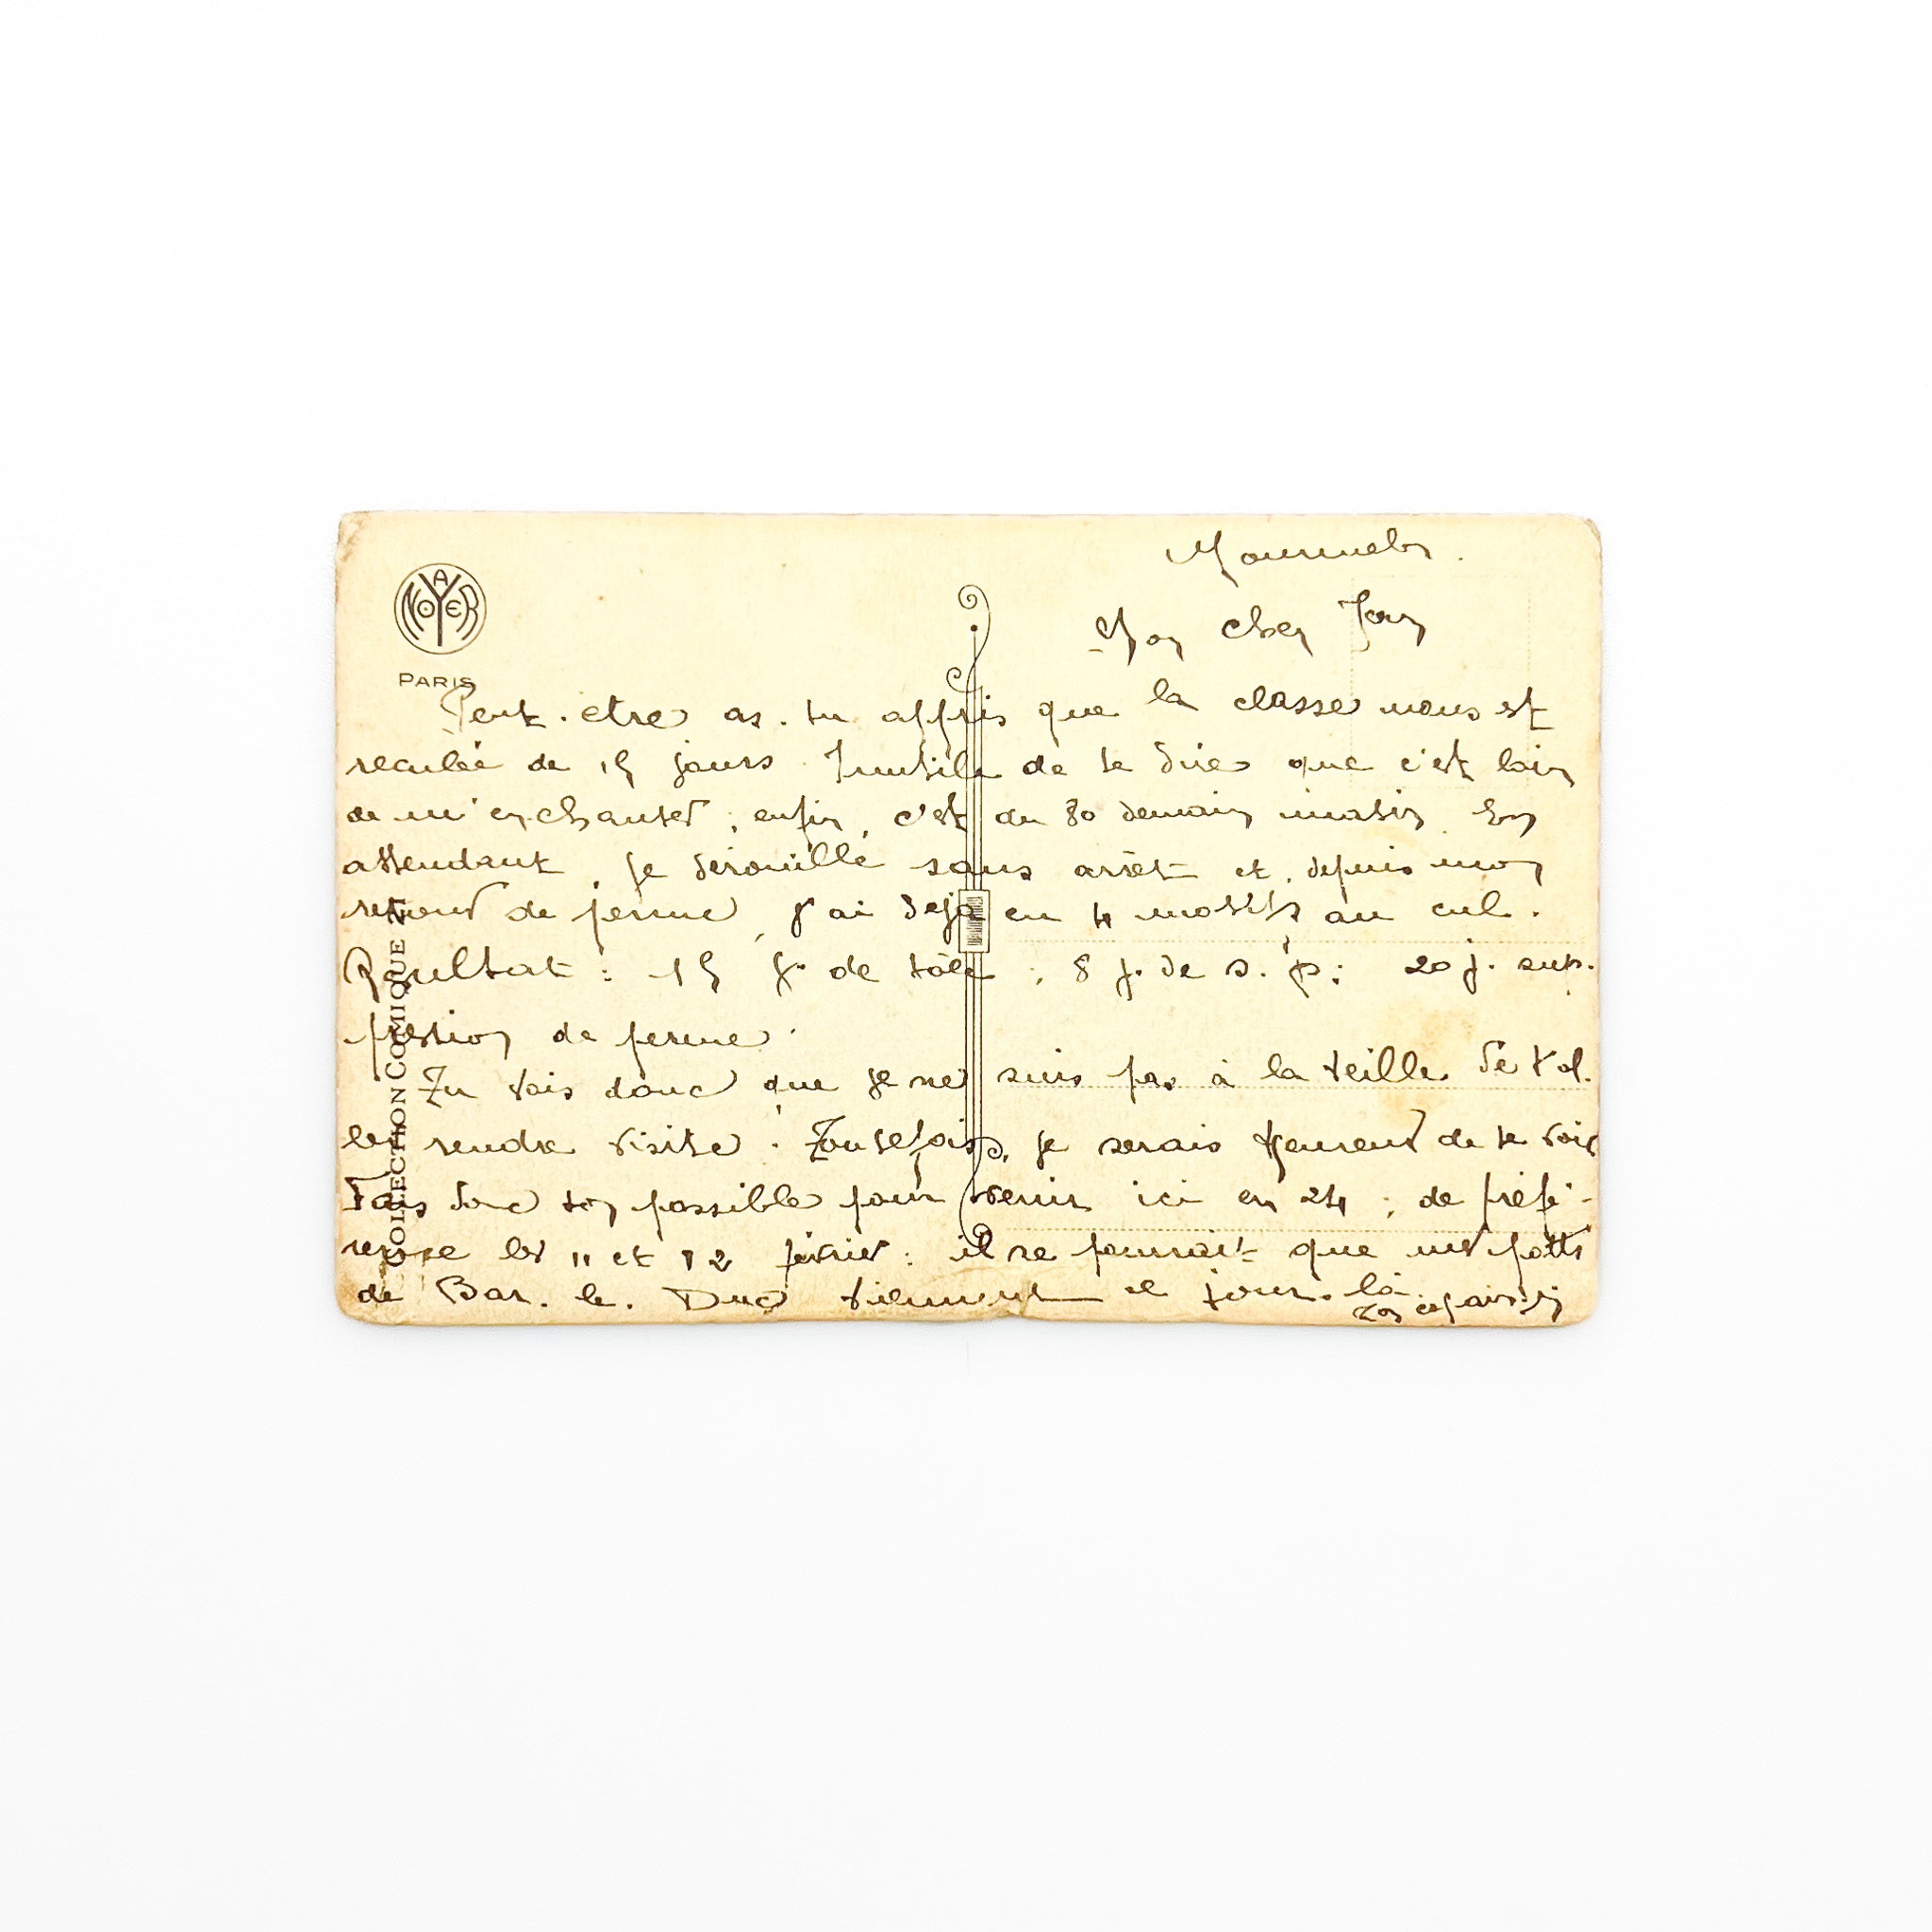 A. NOYER
PARIS
COLLECTION COMIQUE
Mourmelon.
Mon cher
Peut-etre as-tu appris que la classe nous est
reculée de 15 jours. Inutile de te dire que c'est loin
de m'enchanter; enfin, c'est du 80 demain matin. En
attendant, je dérouille sans arrêt et, depuis mon
retour de perme, j'ai déjà eu 4 motifs au cul.
Résultat: 15 j. de tôle; 8 j. de s. p; 20 j. sup-
pression de perme.
Tu vois donc que je ne suis pas à la veille de t'al-
ler rendre visite. Toutefois, je serais heureux de te voir
Fais donc ton possible pour venir ici en 24; de préfé-
rence les 11 et 12 février: il se pourrait que mes potes
de Bar-le-Duc viennent ce jour-là.
Ton